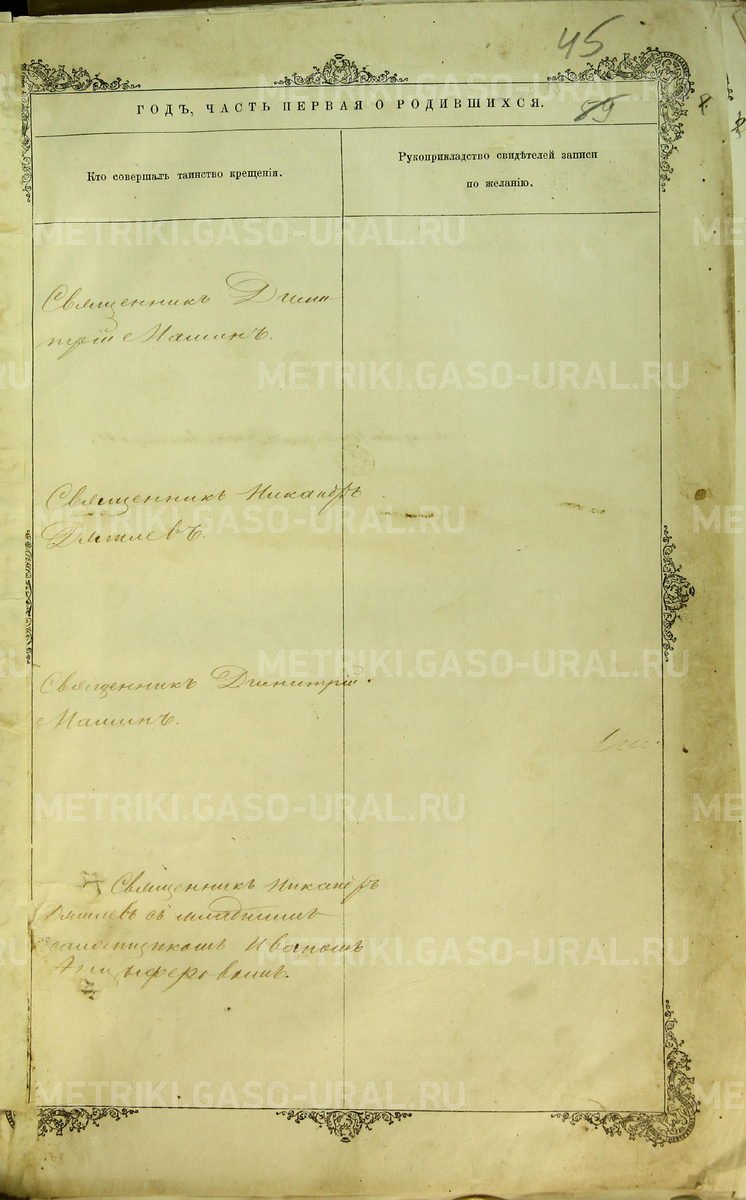 45
ГОДЪ, ЧАСТЬ ПЕРВАЯ О РОДИВШИХСЯ.
Кто совершалъ таинство крещенія.
Рукоприкладство свидѣтелей записи
по желанію.
Священникъ Дими
трій Машинъ.
Священникъ Никандръ
Священникъ Димитрій
Машинъ.
Священникъ Никандръ
съ младшимъ
псаломщикомъ Иваномъ
Анцыферовымъ.
METRIKI.GASO-URAL.RU